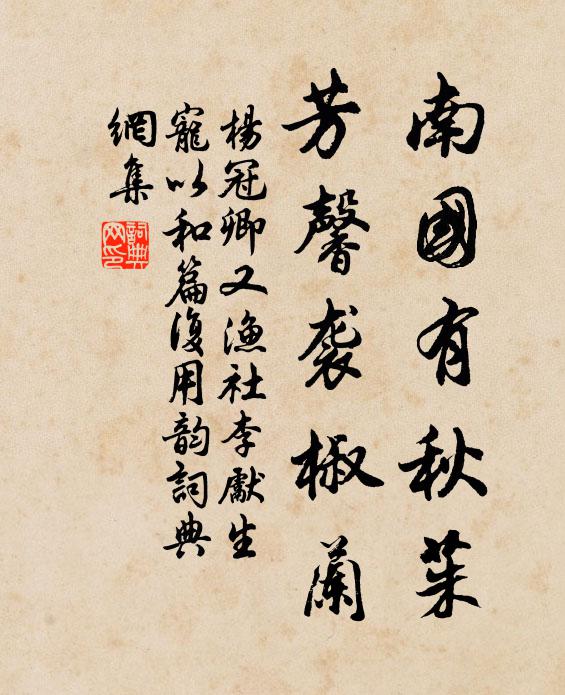 南國有秋茱
芳馨袭椒蘭
楊冠卿又漁社李獻生
寵以和篇復用韵詞典
網集
詞典网印